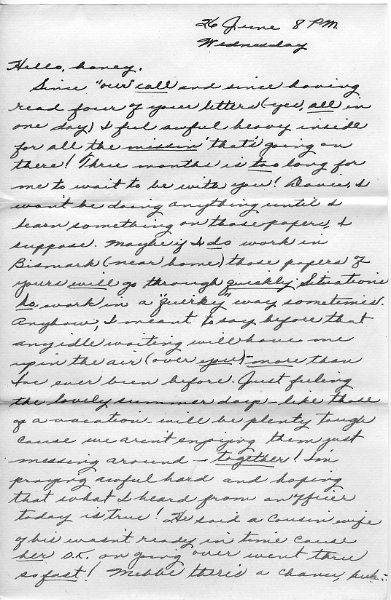 26 June 8 PM
Wednesday
Hello, honey,
Since "our" call and since having
read four of your letters (yes, all in
one day) I feel awful heavy inside
for all the missin' that's going on
there! Three months is too long for
me to wait to be with you! Darn, I
won't be doing anything until I
learn something on those papers, I
suppose. Maybe if I do work in
Bismark (near home) those papers of
yours will go through quickly. Situations
do work in a "quirky" way sometimes.
Anyhow, I meant to say, before that
any idle waiting will have me
up in the air (over you) - more than
I've ever been before. Just feeling
the lovely summer days - like those
of a vacation - will be plenty tough
cause we aren't enjoying them just
messing around - together! I'm
praying awful hard and hoping
that what I heard from an officer
today is true! He said a cousin wife
of his wasn't ready in time cause
her O.K. on going over went thru
so fast! Mebbe there's a chance, huh-